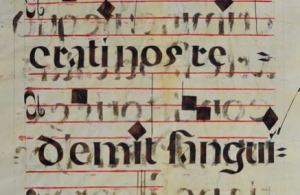 erati nos re=
demit sangui=